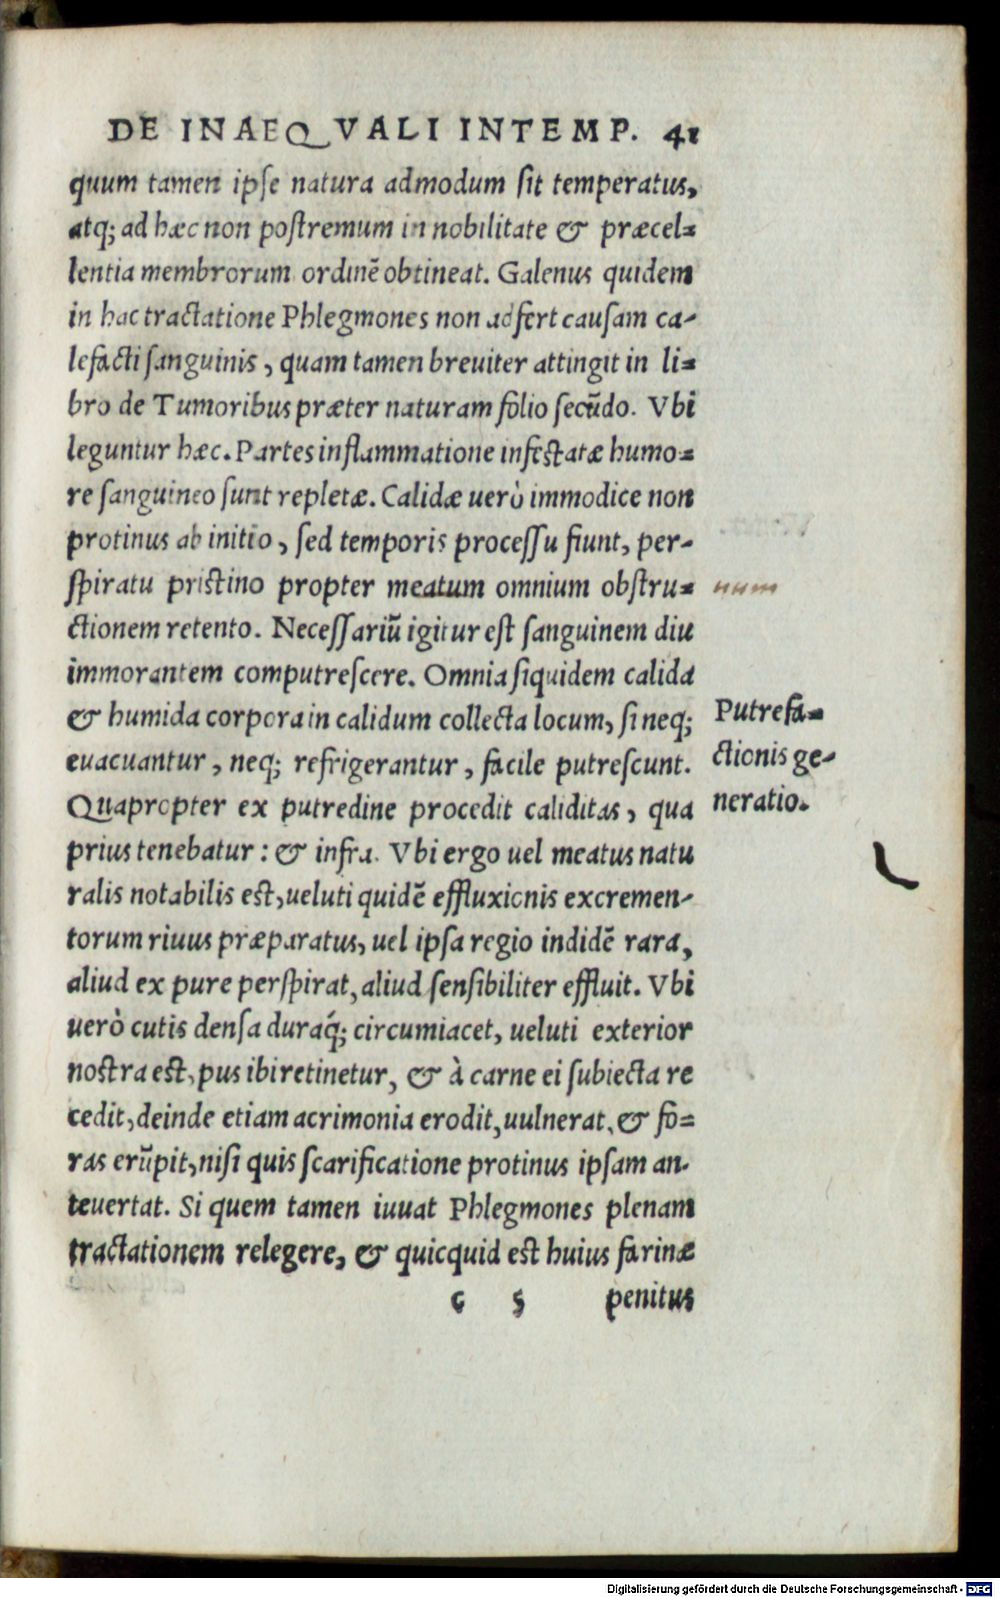 DE INAEQVALI INTEMP. 41
quum tamen ipse natura admodum sit temperatus,
atq; ad hæc non postremum in nobilitate & præcel-
lentia membrorum ordinẽ obtineat. Galenus quidem
in hac tractatione Phlegmones non adfert causam ca-
lefacti sanguinis, quam tamen breuiter attingit in li-
bro de Tumoribus præter naturam folio secũdo. Vbi
leguntur hæc. Partes inflammatione infestatæ humo-
re sanguineo sunt repletæ. Calidæ uerò immodice non
protinus ab initio, sed temporis processu fiunt, per-
spiratu pristino propter meatum omnium obstru-
num
ctionem retento. Necessariũ igitur est sanguinem diu
immorantem computrescere. Omnia siquidem calida
& humida corpora in calidum collecta locum, si neq;
euacuantur, neq; refrigerantur, facile putrescunt.
Quapropter ex putredine procedit caliditas, qua
Putrefa-
ctionis ge-
neratio.
prius tenebatur: & infra. Vbi ergo uel meatus natu
ralis notabilis est, ueluti quidẽ effluxionis excremen-
torum riuus præparatus, uel ipsa regio indidẽ rara,
aliud ex pure perspirat, aliud sensibiliter effluit. Vbi
uerò cutis densa duraq́; circumiacet, ueluti exterior
nostra est, pus ibi retinetur, & à carne ei subiecta re
cedit, deinde etiam acrimonia erodit, uulnerat, & fo-
ras erũpit, nisi quis scarificatione protinus ipsam an-
teuertat. Si quem tamen iuuat Phlegmones plenam
tractationem relegere, & quicquid est huius farinæ
c 5 penitus
Digitalisierung gefördert durch die Deutsche Forschungsgemeinschaft - DFG